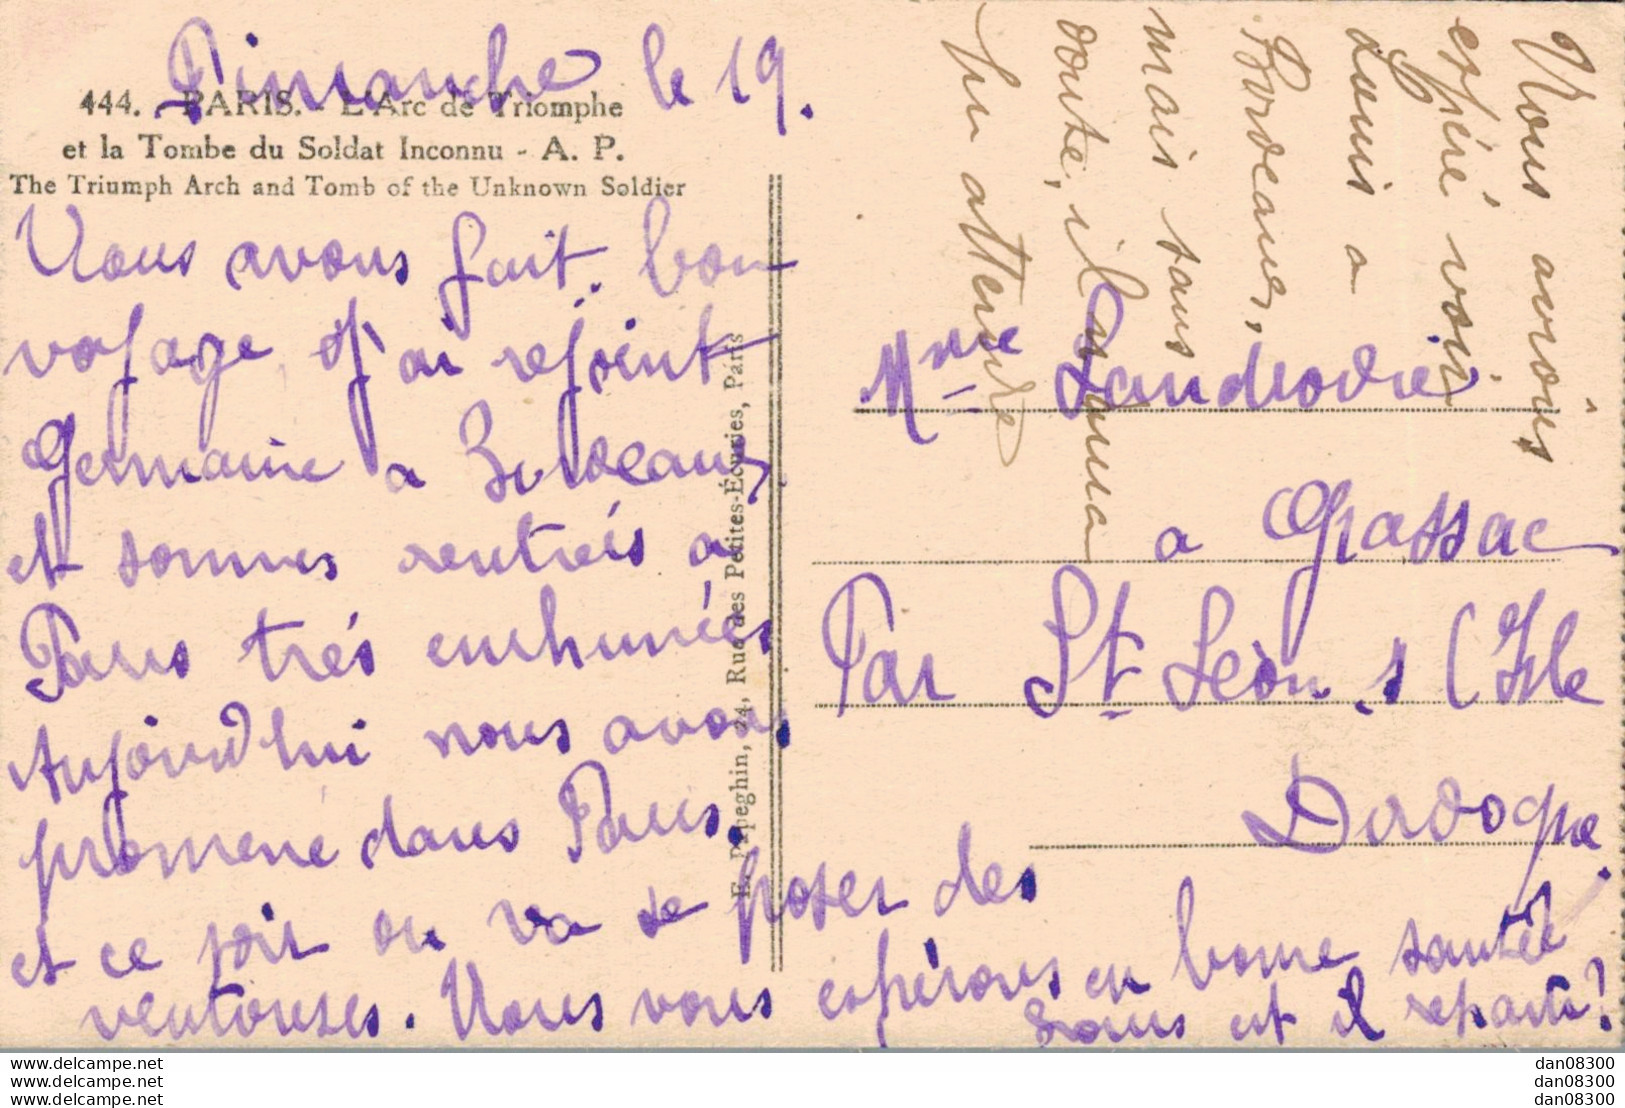 Dimanche le 19.
444. - PARIS. - L'Arc de Triomphe
et la Tombe du Soldat Inconnu - A. P.
The Triumph Arch and Tomb of the Unknown Soldier
Nous avons fait bon
voyage j'ai rejoint
Germaine a Bordeaux
et sommes rentrés a
Paris trés enrhumées
Aujourd'hui nous avons
promené dans Paris.
et ce soir on va se poser des
ventouses. Nous vous espérons en bonne santée
Louis est il reparti?
E. Papeghin, 24, Rue des Petites-Écuries, Paris
Mme Landrodie
a Grassac
Par St Léon s/ (Isle
Dordogne
Nous avions
espéré voir
Louis a
Bordeaux,
mais sans
doute, il n'aura
pu attendre
www.delcampe.net
www.delcampe.net
www.delcampe.net
dan08300
dan08300
dan08300